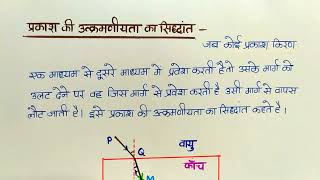 प्रकाश की उत्क्रमणीयता का सिद्धांत -
जब कोई प्रकाश किरण
एक माध्यम से दूसरे माध्यम में प्रवेश करती है तो उसके मार्ग को
उलट देने पर वह जिस मार्ग से प्रवेश करती है उसी मार्ग से वापस
लौट जाती है। इसे प्रकाश की उत्क्रमणीयता का सिद्धांत कहते है।
P
Q
वायु
काँच
M